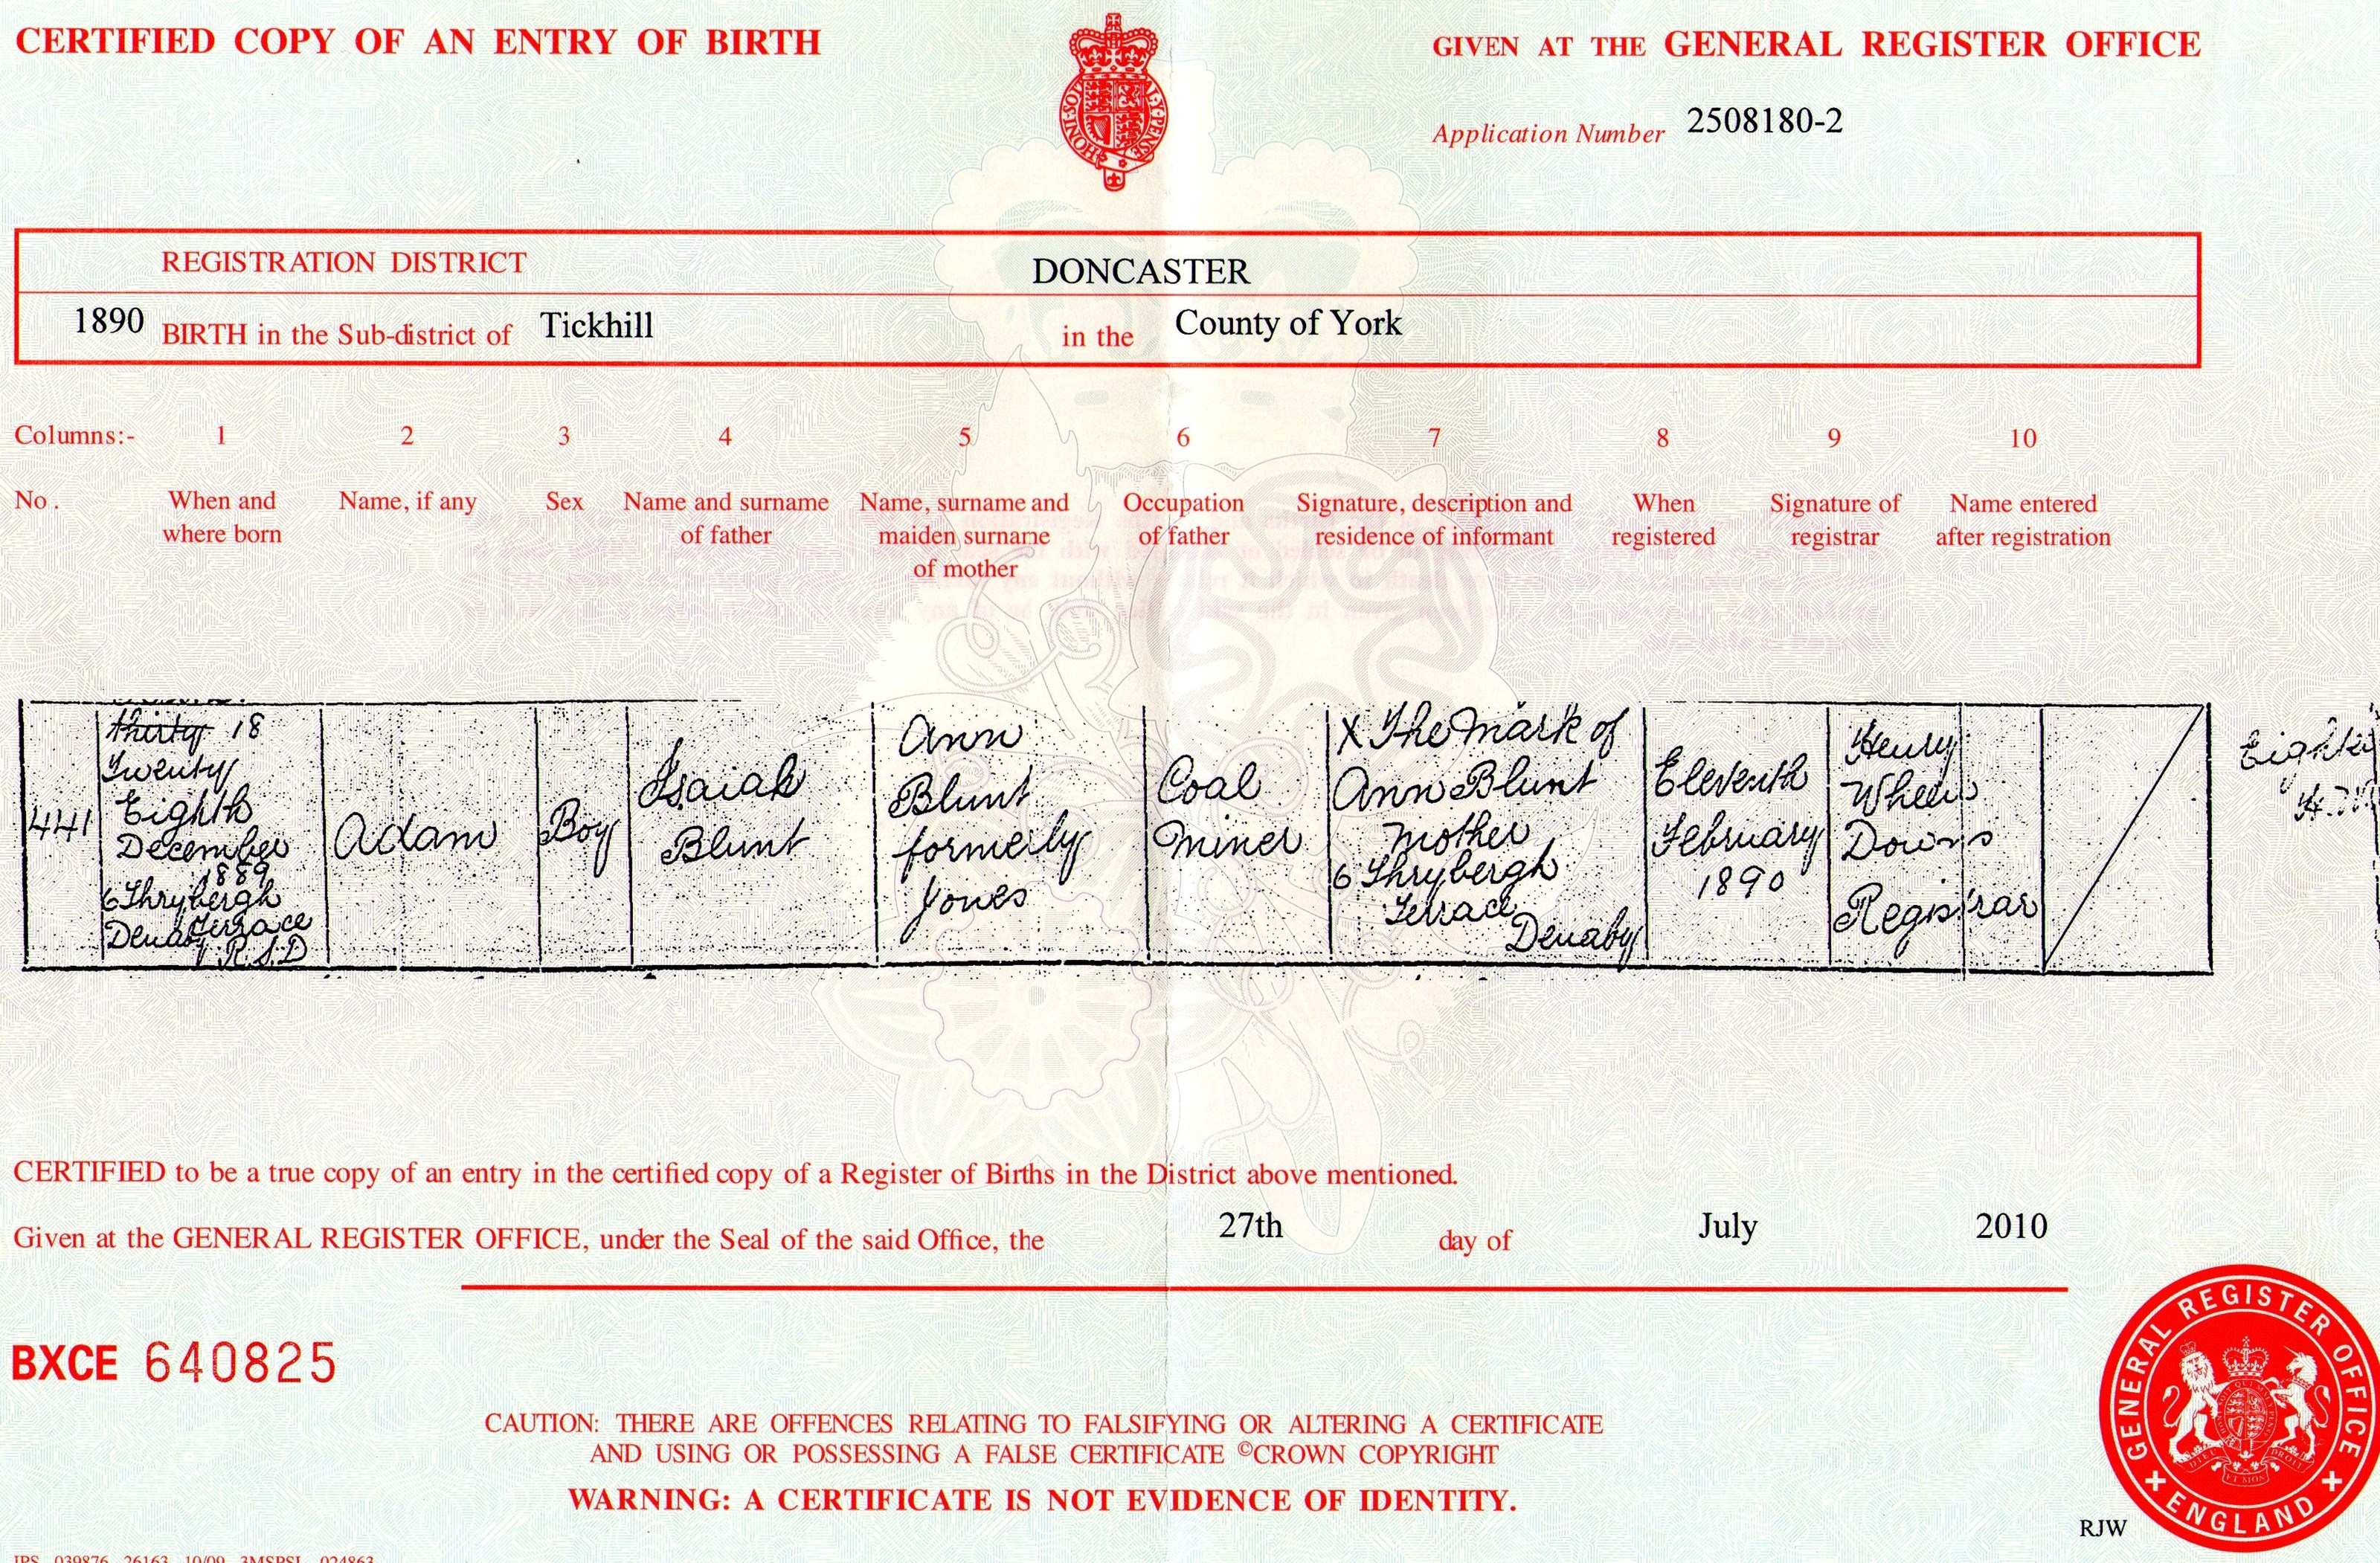 CERTIFIED COPY OF AN ENTRY OF BIRTH
GIVEN AT THE GENERAL REGISTER OFFICE
Application Number 2508180-2
REGISTRATION DISTRICT DONCASTER
1890 BIRTH in the Sub-district of Tickhill in the County of York
Columns:- 1 2 3 4 5 6 7 8 9 10
No. When and where born
Name, if any
Sex
Name and surname of father
Name, surname and maiden surname of mother
Occupation of father
Signature, description and residence of informant
When registered
Signature of registrar
Name entered after registration
441
thirty 18
Twenty
Eighth
December
1889
6 Thrybergh
Terrace
Denaby R.S.D
Adam
Boy
Isaiah
Blunt
Ann
Blunt
formerly
Jones
Coal
Miner
X The Mark of
Ann Blunt
Mother
6 Thrybergh
Terrace
Denaby
Eleventh
February
1890
Henry
Downs
Registrar
CERTIFIED to be a true copy of an entry in the certified copy of a Register of Births in the District above mentioned.
Given at the GENERAL REGISTER OFFICE, under the Seal of the said Office, the 27th day of July 2010
BXCE 640825
CAUTION: THERE ARE OFFENCES RELATING TO FALSIFYING OR ALTERING A CERTIFICATE
AND USING OR POSSESSING A FALSE CERTIFICATE ©CROWN COPYRIGHT
WARNING: A CERTIFICATE IS NOT EVIDENCE OF IDENTITY.
GENERAL REGISTER OFFICE
ENGLAND
RJW